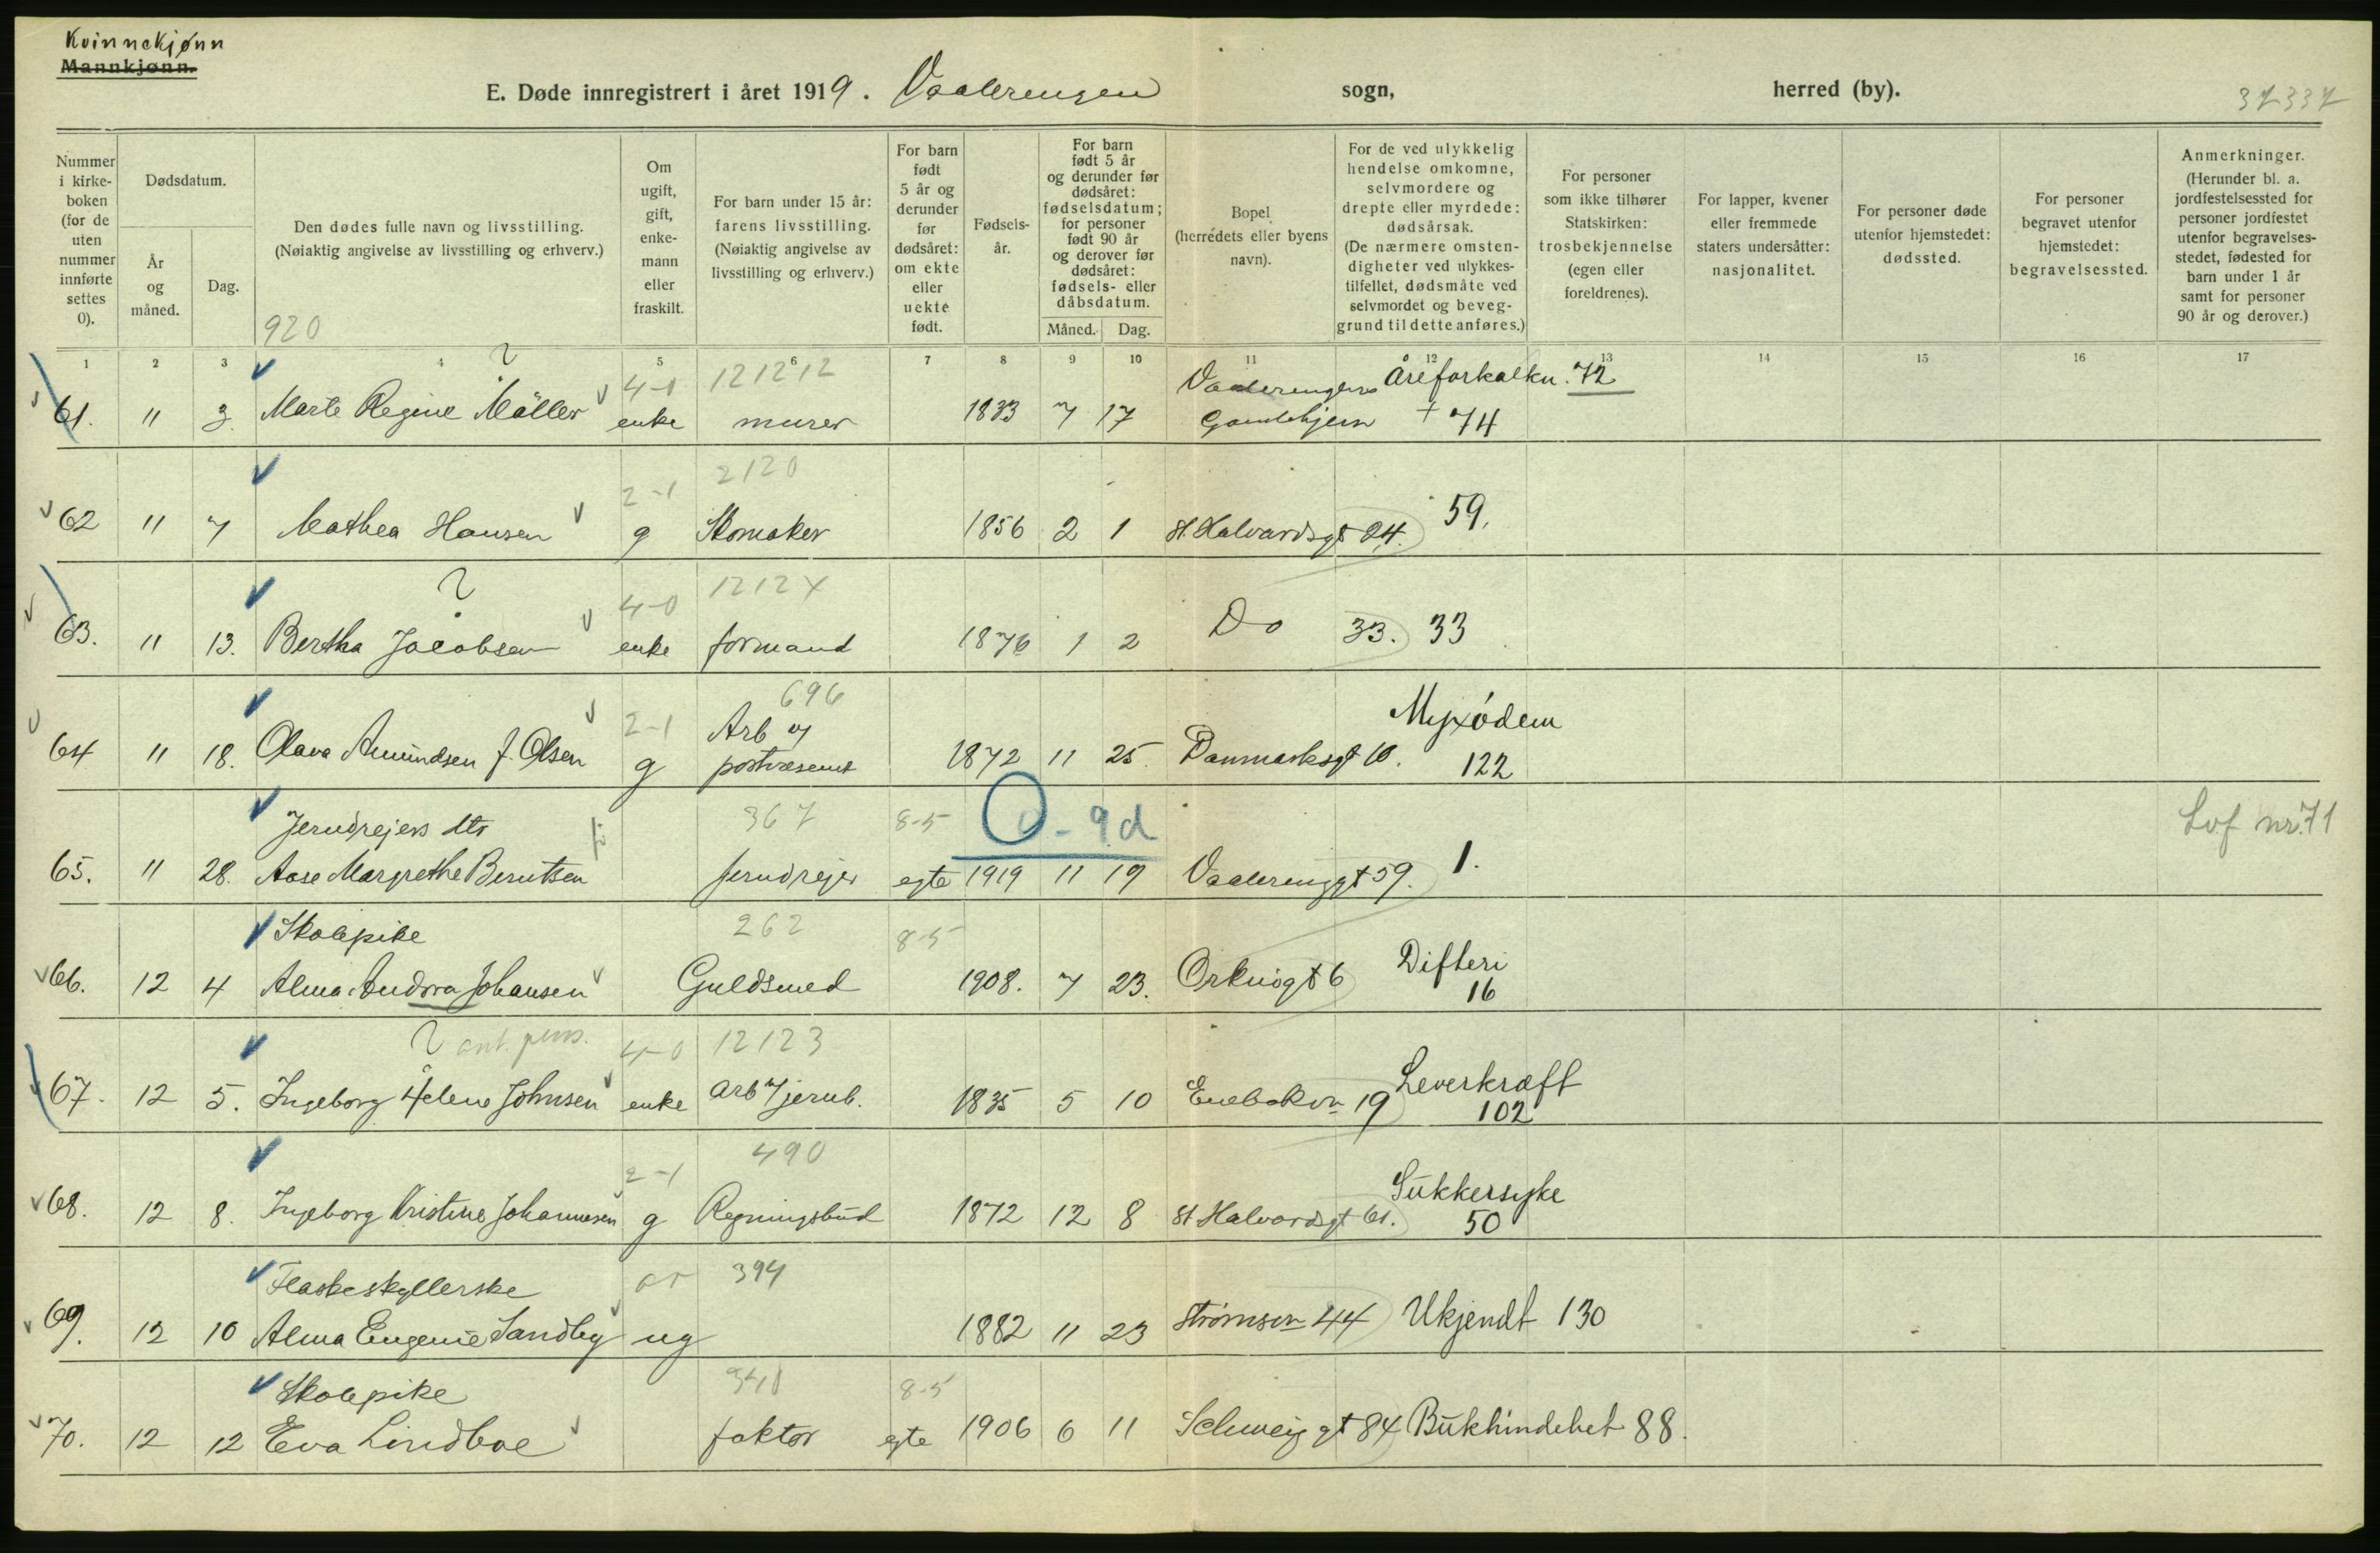 Kvinnekjønn
Mannkjønn.
E. Døde innregistrert i året 1919. Vaalerengen sogn, herred (by).
37337
Nummer i kirkeboken (for de uten nummer innførte settes 0).
Dødsdatum.
År og måned.
Dag.
Den dødes fulle navn og livsstilling.
(Nøiaktig angivelse av livsstilling og erhverv.)
920
Om ugift, gift, enkemann eller fraskilt.
For barn under 15 år: farens livsstilling.
(Nøiaktig angivelse av livsstilling og erhverv.)
For barn født 5 år og derunder før dødsåret: om ekte eller uekte født.
Fødselsår.
For barn født 5 år og derunder før dødsåret: fødselsdatum; for personer født 90 år og derover før dødsåret: fødsels- eller dåbsdatum.
Måned. Dag.
Bopel (herredets eller byens navn).
For de ved ulykkelig hendelse omkomne, selvmordere og drepte eller myrdede: dødsårsak.
(De nærmere omstendigheter ved ulykkestilfellet, dødsmåte ved selvmordet og beveggrund til dette anføres.)
For personer som ikke tilhører Statskirken: trosbekjennelse (egen eller foreldrenes).
For lapper, kvener eller fremmede staters undersåtter: nasjonalitet.
For personer døde utenfor hjemstedet: dødssted.
For personer begravet utenfor hjemstedet: begravelsessted.
Anmerkninger.
(Herunder bl. a. jordfestelsessted for personer jordfestet utenfor begravelsesstedet, fødested for barn under 1 år samt for personer 90 år og derover.)
1 2 3 4 5 6 7 8 9 10 11 12 13 14 15 16 17
4-0 121212 Vaalerengens Åreforkalkn. 72
61. " 3. Marte Regine Möller enke murer 1833 7 17 Gamlehjem + 74
2-1 2120
62 " 7 Mathea Hansen g Skomaker 1856 2 1 St. Halvardsgt 24. 59.
4-0 1212X
63. " 13. Bertha Jacobsen enke formand 1876 1 2 Do 33. 33
696
2-1 Arb v/ Myxödem
64 " 18. Olava Amundsen f. Olsen g postvæsenet 1872 11 25. Danmarksgt 10. 122
Jerndrejers dtr 367 8-5 0-9d
65. " 28. Aase Margrethe Berntsen jerndrejer egte 1919 11 19 Vaalerenggt 59. 1.
Lvf nr. 71
Skolepike 262 8-5 Difteri
66. 12 4 Alma Andora Johansen Guldsmed 1908. 7 23. Orknögt 6 16
ant. pens. 4-0 12123 Leverkræft
67. 12 5. Ingeborg Helene Johnsen enke Arb v/ jernb. 1835 5 10 Enebakvn 19 102
2-1 490 Sukkersyke
68. 12 8. Ingeborg Kristine Johannesen g Regningsbud 1872 12 8 St Halvardsgt 61. 50
Flaskeskyllerske 394
69. 12 10 Alma Eugenie Sandby ug 1882 11 23 Strømsvn 44 Ukjendt 130
Skolepike 340 8-5
70. 12 12 Eva Lindboe faktor egte 1906 6 11 Schweigt gt 84 Bukhindebet 88.